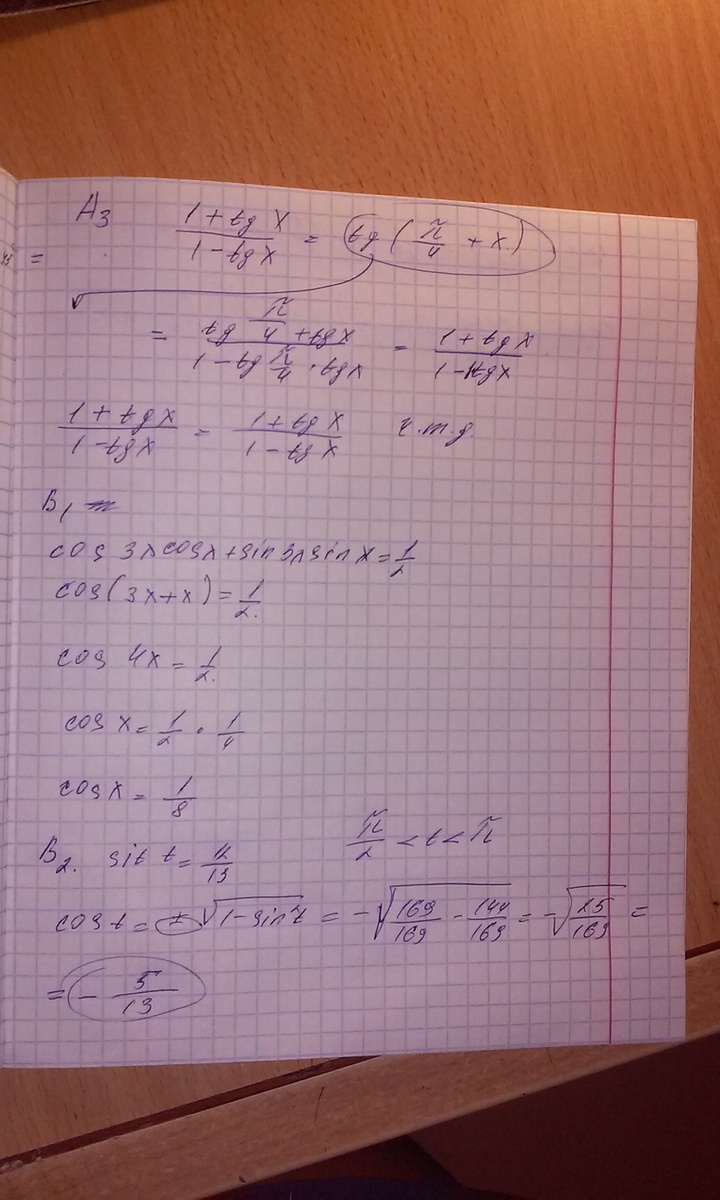 A₃ (1 + tg x)/(1 - tg x) = tg (π/4 + x)
=
= (tg π/4 + tg x)/(1 - tg π/4 · tg x) = (1 + tg x)/(1 - tg x)
(1 + tg x)/(1 - tg x) = (1 + tg x)/(1 - tg x) ч.т.д.
B₁
cos 3x cos x + sin 3x sin x = 1/2
cos(3x + x) = 1/2.
cos 4x = 1/2.
cos x = 1/2 · 1/4
cos x = 1/8
B₂. sit t = 12/13 π/2 < t < π
cos t = ±√(1 - sin²t) = -√(169/169 - 144/169) = -√(25/169) =
= - 5/13